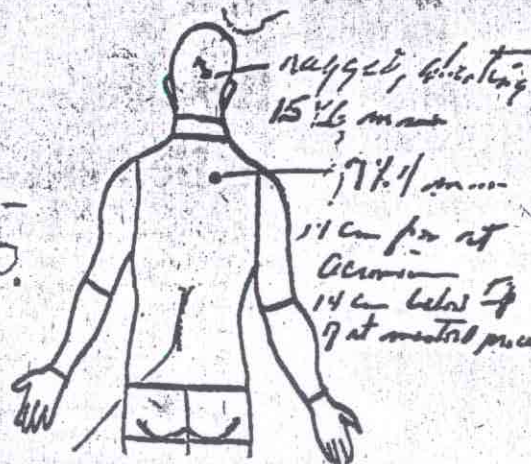 ragged, slanting
15 x 6 mm
7 x 4 mm
14 cm from rt
acromion
14 cm below tip
of rt mastoid process